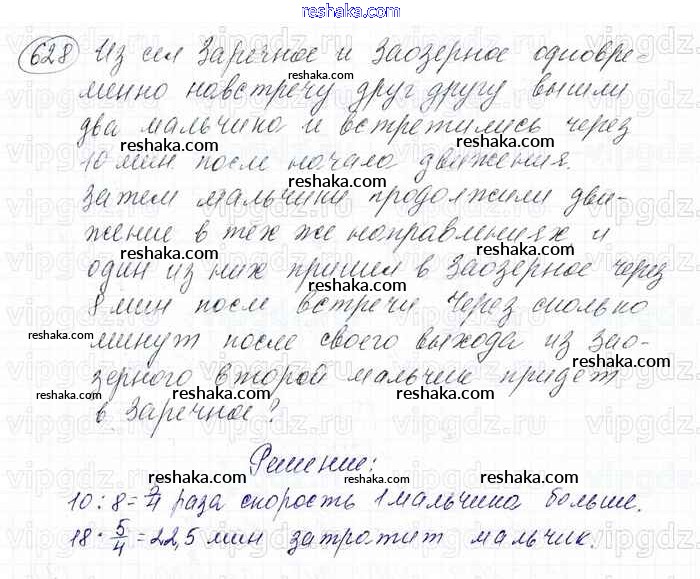 reshaka.com
628 Из сел Заречное и Заозерное одновре-
reshaka.com
менно навстречу друг другу вышли
reshaka.com
два мальчика и встретились через
reshaka.com
10 мин после начала движения.
reshaka.com
Затем мальчики продолжили дви-
reshaka.com
жение в тех же направлениях и
reshaka.com
один из них пришел в Заозерное через
reshaka.com
8 мин после встречи. Через сколько
reshaka.com
минут после своего выхода из Зао-
reshaka.com
зерного второй мальчик придет
reshaka.com reshaka.com
в Заречное?
reshaka.com
Решение:
reshaka.com reshaka.com
10 : 8 = 5/4 раза скорость 1 мальчика больше.
18 · 5/4 = 22,5 мин затратит мальчик.
reshaka.com reshaka.com